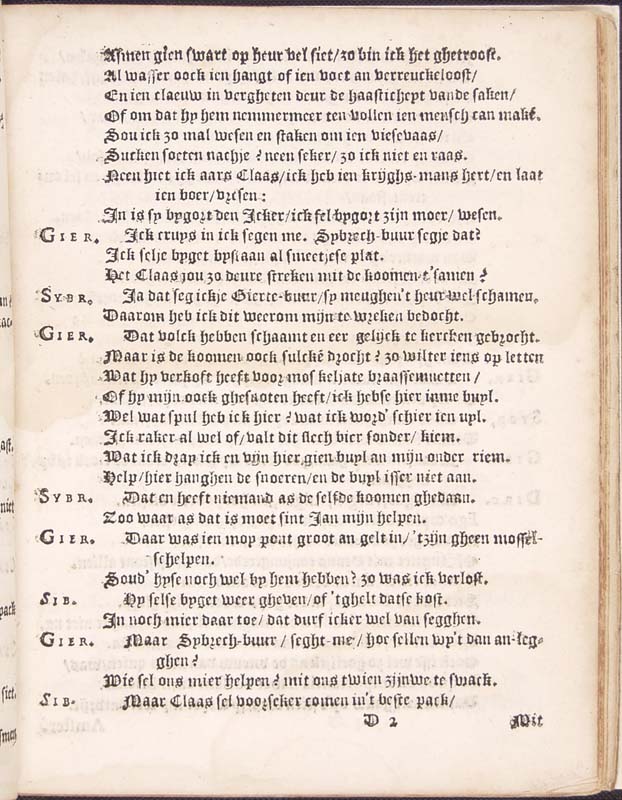 Asmen gien swart op heur vel siet/zo bin ick het ghetroost.
Al wasser oock ien hangt of ien voet an verreuckeloost/
En ien claeuw in vergheten deur de haasticheyt vande saken/
Of om dat hy hem nemmermeer ten vollen ien mensch can makē.
Sou ick zo mal wesen en staken om ien viesevaas/
Sucken soeten nachje? neen seker/ zo ick niet en raas.
Neen hiet ick aars Claas/ick heb ien krijghs-mans hert/en laat
ien boer/vresen:
In is sy bygort den Icker/ick sel bygort zijn moer/ wesen.
GIER. Ick cruys in ick segen me. Sybrech-buur segje dat?
Ick selje byget bystaan al smeetjese plat.
Het Claas jou zo deure streken mit de koomen t'samen?
SYBR. Ja dat seg ickje Gierte-buur/sy meughen't heur wel schamen.
Daarom heb ick dit weerom mijn te wreken bedocht.
GIER. Dat volck hebben schaamt en eer gelijck te kercken gebrocht.
Maar is de koomen oock sulckē drocht? zo wilter iens op letten
Wat hy verkoft heeft voor moskeljate braassemuetten/
Of hy mijn oock ghesnoten heeft/ick hebse hier inme buyl.
Wel wat spul heb ick hier? wat ick word' schier ien uyl.
Ick raker al wel of/valt dit slech vier sonder/ kiem.
Wat ick dray ick en vijn hier gien buyl an mijn onder riem.
Help/hier hanghen de snoeren/en de buyl isser niet aan.
SYBR. Dat en heeft niemand as de selfde koomen ghedaan.
Zoo waar as dat is moet sint Jan mijn helpen.
GIER. Daar was ien mop pont groot an gelt in/'tzijn gheen mossel-
schelpen.
Soud' hyse noch wel by hem hebben? zo was ick verlost.
SIB. Hy selse byget weer gheven/of 'tghelt datse kost.
In noch mier daar toe/ dat durf icker wel van segghen.
GIER. Maar Sybrech-buur/ seght-me/ hoe sellen wy't dan an-leg-
ghen?
Wie sel ons mier helpen? mit ons twien zijnwe te swack.
SIB. Maar Claas sel voorseker comen in't beste pack/
D 2 Mit